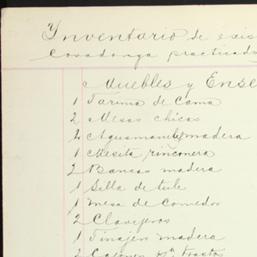 Inventario de exis
Covadonga practicado
Muebles y Ense
1 Tarima de Cama
2 Mesas chicas
2 Aguamanil madera
1 Mesita rinconera
2 Bancas madera
1 Silla de tule
1 mesa de Comedor
2 Clavijeros
1 Tinajero madera
2